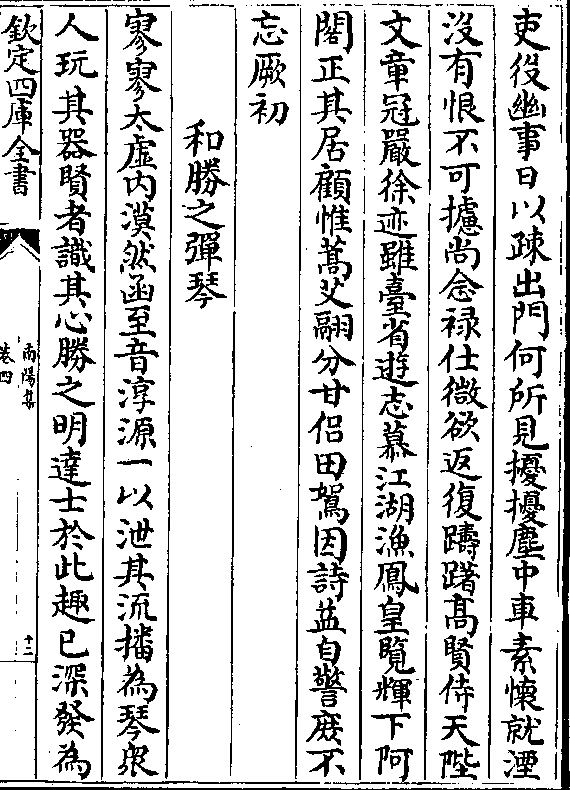 吏役幽事日以疎出門何所見擾擾塵中車素懷就湮
沒有恨不可攄尚念禄仕微欲返復躊躇髙賢侍天陛
文章冠嚴徐迹雖臺省遊志慕江湖漁鳳皇覽輝下阿
閣正其居顧惟蒿艾翮分甘侣田鴽因詩益自警庶不
忘厥初
和勝之彈琴
寥寥太虚内漠然函至音淳源一以泄其流播為琴衆
人玩其器賢者識其心勝之明達士於此趣已深發為
欽定四庫全書
南陽集
卷四
十二